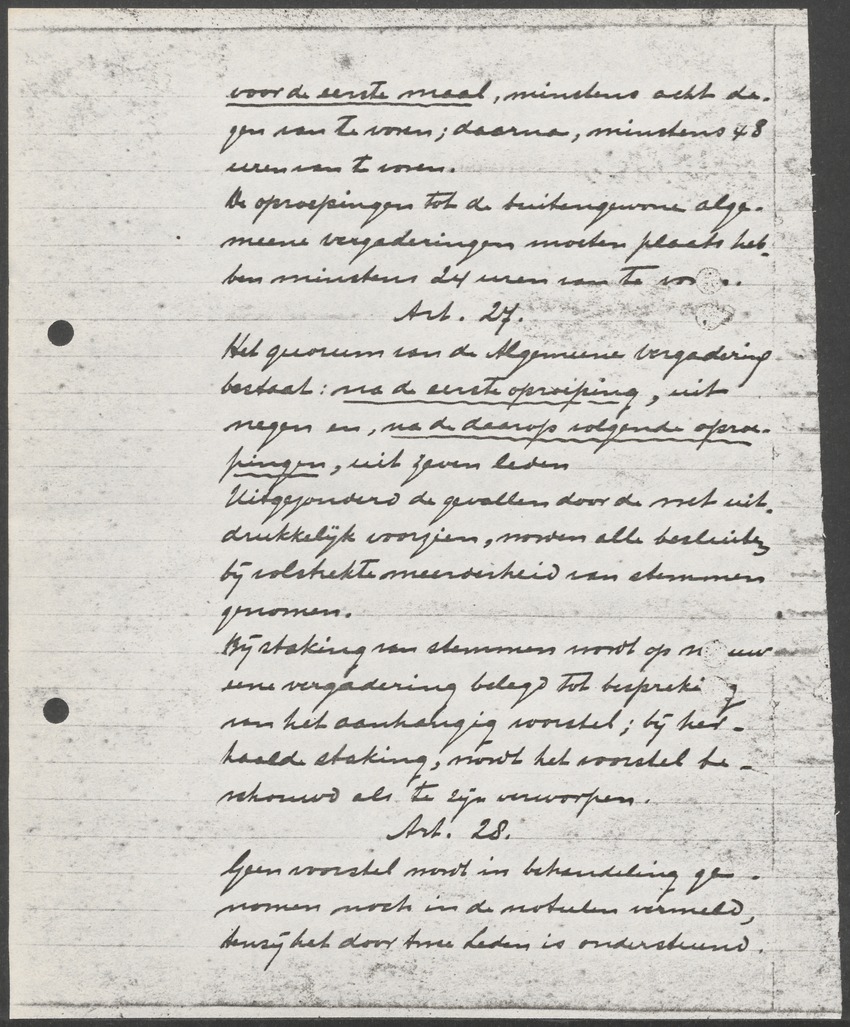 voor de eerste maal, minstens acht da-
gen van te voren; daarna, minstens 48
uren van te voren.
De oproepingen tot de buitengewone alge-
meene vergaderingen moeten plaats heb-
ben minstens 24 uren van te vor..
Art. 27.
Het quorum van de Algemeene vergadering
bestaat: na de eerste oproeping, uit
negen en, na de daarop volgende oproe-
pingen, uit zeven leden
Uitgezonderd de gevallen door de wet uit-
drukkelijk voorzien, worden alle besluiten
bij volstrekte meerderheid van stemmen
genomen.
Bij staking van stemmen wordt op n euw
eene vergadering belegd tot bespreki g
van het aanhangig voorstel; bij her-
haalde staking, wordt het voorstel be-
schouwd als te zijn verworpen.
Art. 28.
Geen voorstel wordt in behandeling ge-
nomen noch in de notulen vermeld,
tenzij het door twee Leden is ondersteund.